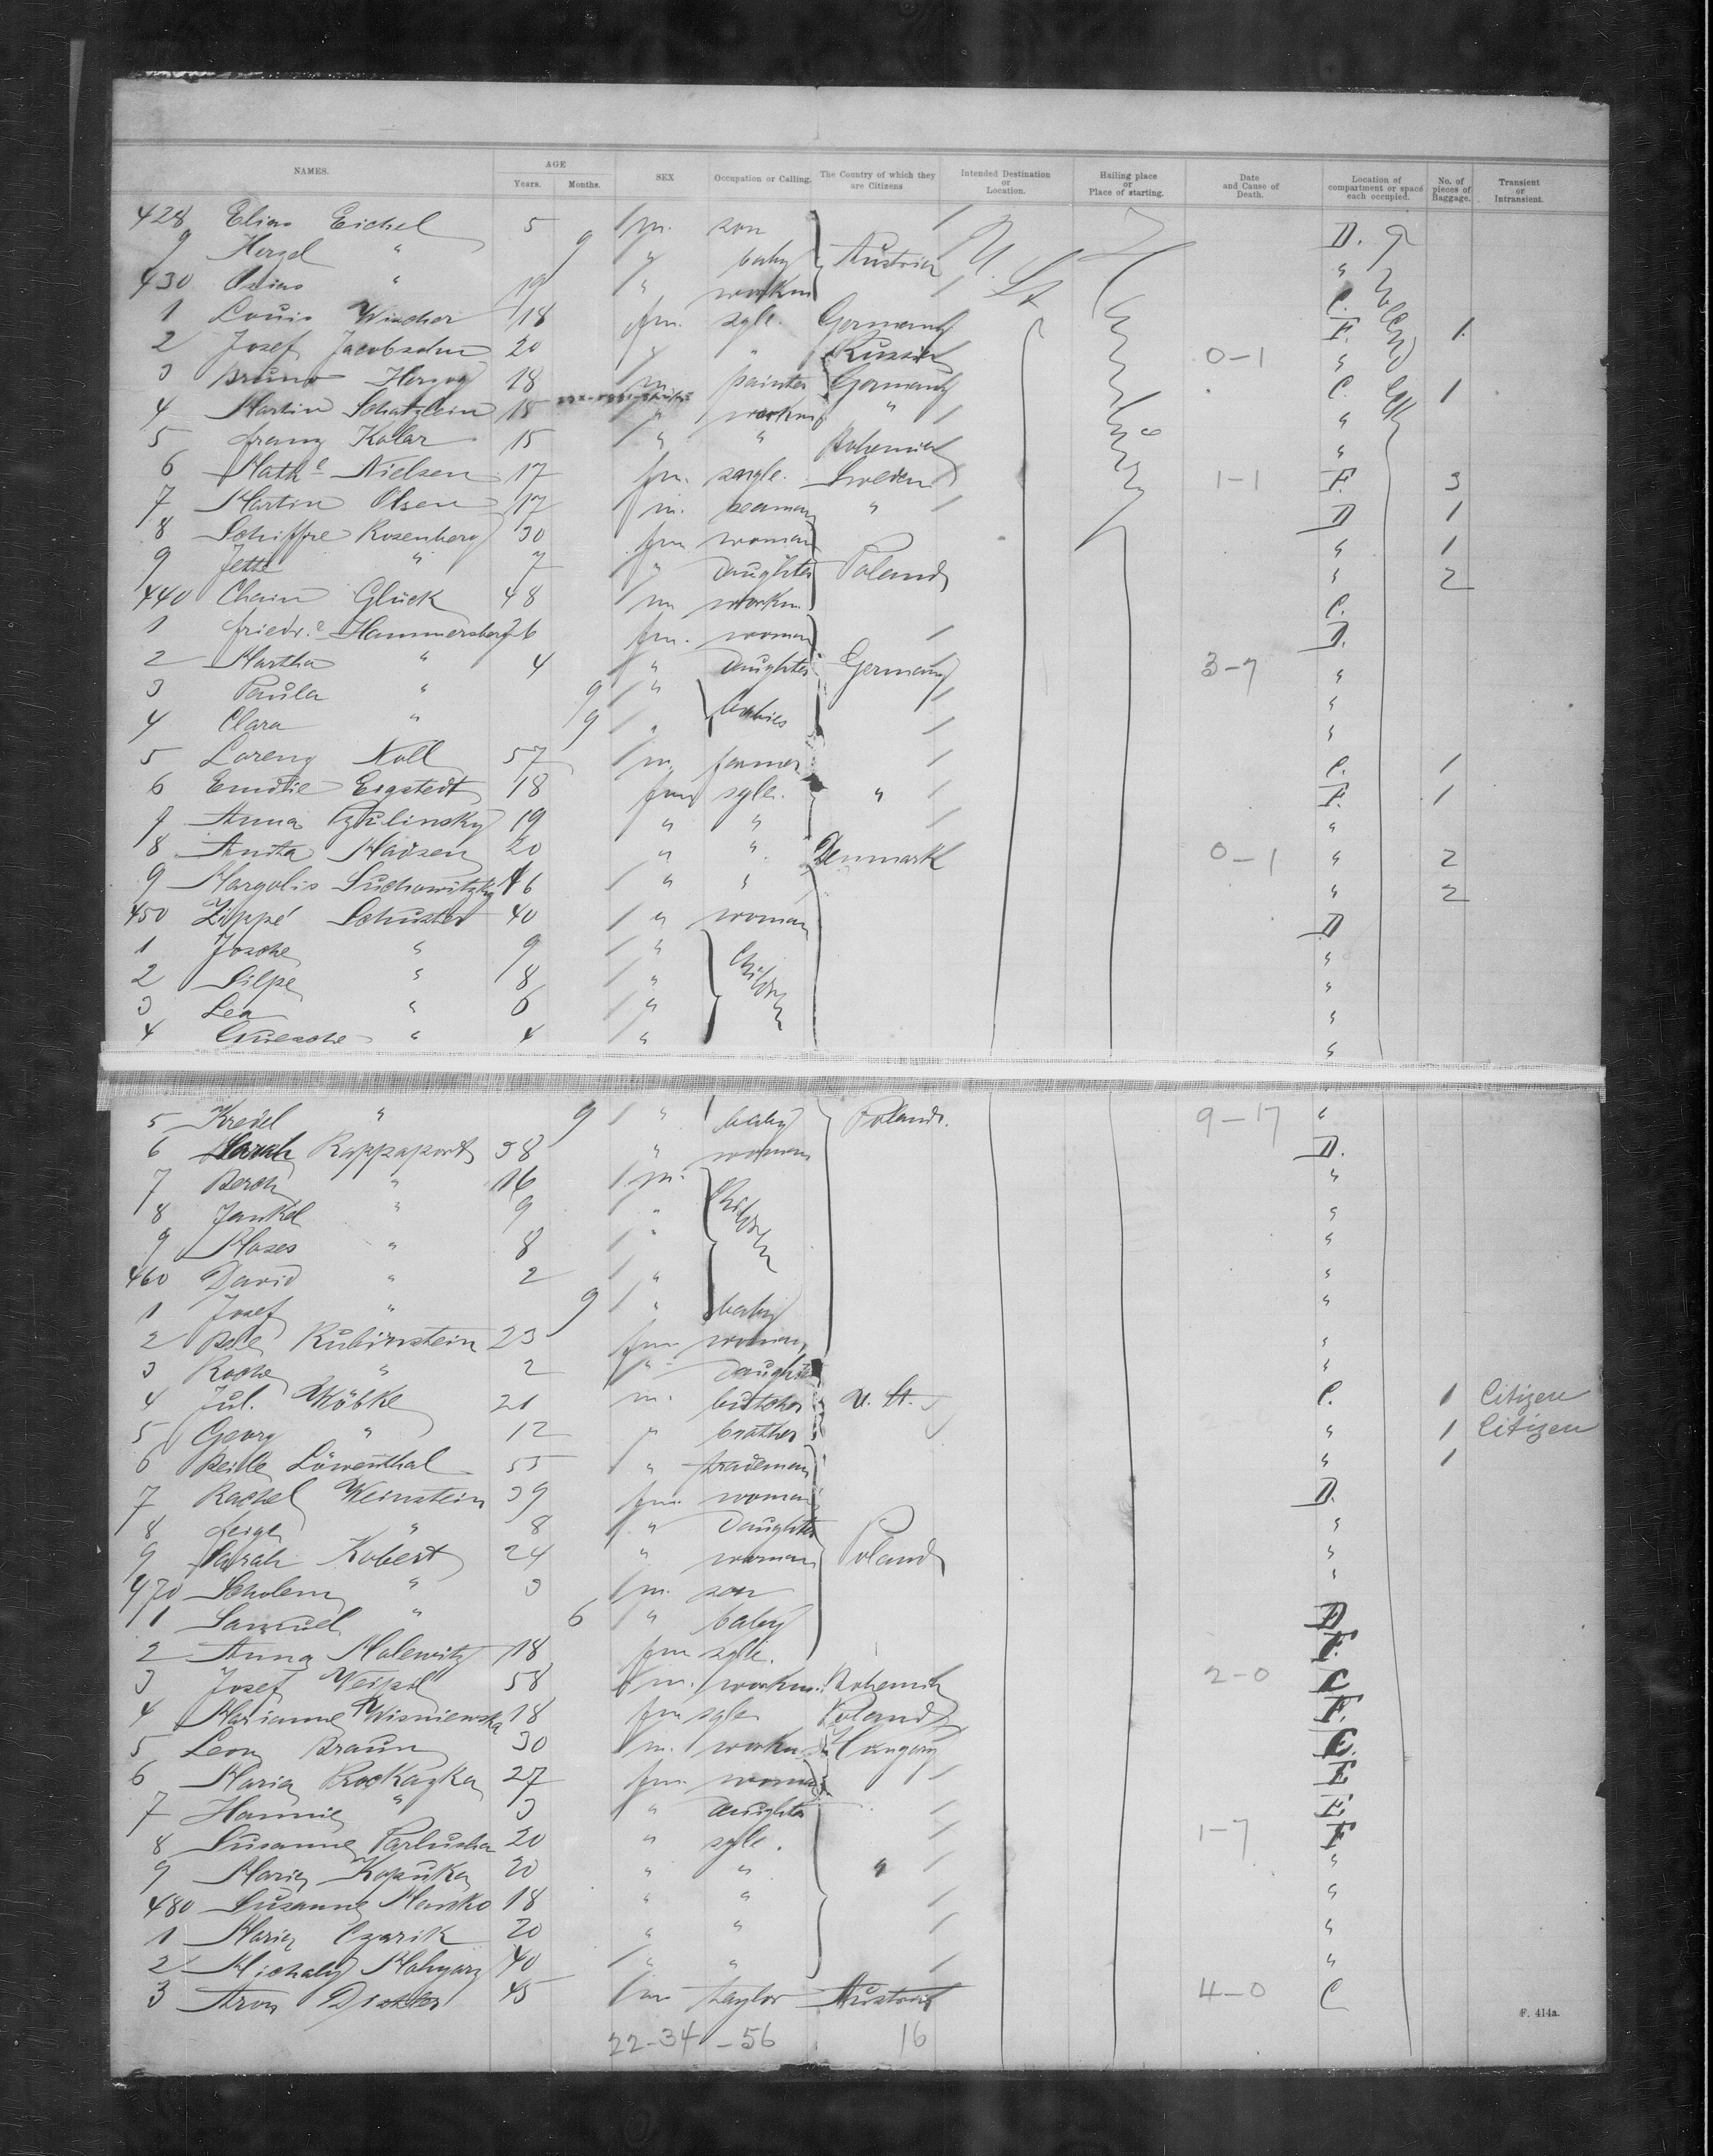 NAMES. AGE Years. Months. SEX Occupation or Calling. The Country of which they are Citizens Intended Destination or Location. Hailing place or Place of starting. Date and Cause of Death. Location of compartment or space each occupied. No. of pieces of Baggage. Transient or Intransient.
428 Elias Eichel 5 m. son D.
9 " 9 " baby Austria "
430 Osias " 19 " workm C.
1 Louis 18 fm. sgle. Germany F. 1
2 Josef Jacobsohn 20 " " Russia 0-1 "
3 Bruno Herzog 18 m. painter Germany C. 1
4 Martin Schatzlein 18 " workm " "
5 Franz Kolar 15 " " Bohemia "
6 Math e Nielsen 17 fm. sngle. Sweden 1-1 F. 3
7 Martin Olsen 17 m. seaman " D 1
8 Schiffre Rosenberg 30 fm woman " 1
9 Jette " 7 " Daughter Poland " 2
440 Chaim Glück 48 m workm. C.
1 Friedr. e Hammersberg 26 fm. woman D.
2 Martha " 4 " Daughter Germany 3-7 "
3 Paula " 9 " babies "
4 Clara " 9 " "
5 Lorenz Noll 57 m. farmer C. 1
6 Emilie Eigstedt 18 fm sgle. " F. 1
7 Anna 19 " " "
8 Anita Madsen 20 " " Denmark 0-1 " 2
9 Margolis Suchowitzky 16 " " " 2
450 Zippe Schuster 40 " woman D
1 Josche " 9 " children "
2 Silpe " 8 " "
3 Lea " 6 " "
4 " 4 " "
5 Kreidl " 9 " baby Poland. 9-17 "
6 Sarah Rappaport 38 " woman D.
7 Berch " 16 m. children "
8 Jankel " 9 " "
9 Moses " 8 " "
460 David " 2 " "
1 Josef " 9 " baby "
2 Rubinstein 23 fm. woman "
3 Roche " 2 " Daughter "
4 Jul. Wöbke 21 m. butcher U. St. C. 1 Citizen
5 Georg " 12 " brother " 1 Citizen
6 Beile Löwenthal 55 " trademan " 1
7 Rachel Weinstein 39 fm. woman D.
8 Feige " 8 " Daughter "
9 Sarah Kobert 24 " woman Poland "
470 Scholem " 3 m. son "
1 Samuel " 6 " baby D
2 Anna Malewitz 18 fm sgle. F.
3 Josef 58 m. workm. Bohemia 2-0 C
4 Marianne Wisniewska 18 fm sgle Poland F.
5 Leon Braun 30 m. workm Hungary C.
6 Maria Prochazka 27 fm. woman F
7 Hannie " 3 " daughter F.
8 Susanne 20 " sgle. 1-7 F
9 Maria Kopuka 20 " " " "
480 Susanne Hanko 18 " " "
1 Maria Czarik 20 " " "
2 Michaly 40 " " "
3 Aron 45 m taylor Austria 4-0 C
22-34-56 16
F. 414a.